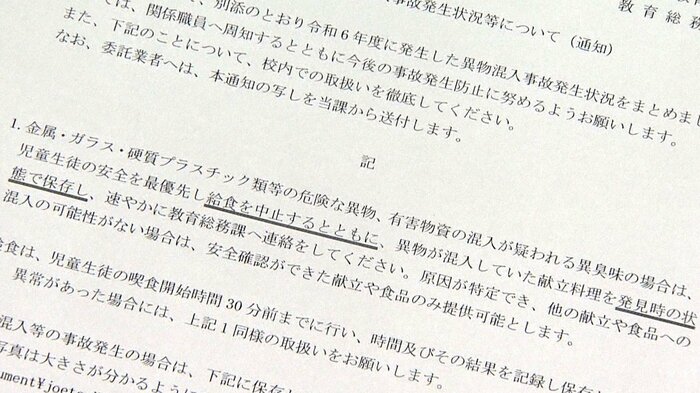 教育総務
事故発生状況等について（通知）
、別添のとおり令和６年度に発生した異物混入事故発生状況をまとめまし
ては、関係職員へ周知するとともに今後の事故発生防止に努めるようお願いします。
また、下記のことについて、校内での取扱いを徹底してください。
なお、委託業者へは、本通知の写しを当課から送付します。
記
1. 金属・ガラス・硬質プラスチック類等の危険な異物、有害物資の混入が疑われる異臭味の場合は、
児童生徒の安全を最優先し給食を中止するとともに、異物が混入していた献立料理を発見時の状
態で保存し、速やかに教育総務課へ連絡をしてください。原因が特定でき、他の献立や食品への
混入の可能性がない場合は、安全確認ができた献立や食品のみ提供可能とします。
食は、児童生徒の喫食開始時間 30 分前までに行い、時間及びその結果を記録し保存し
異常があった場合には、上記１同様の取扱いをお願いします。
混入等の事故発生の場合は、下記に保存し
写真は大きさが分かるように
ument¥joets